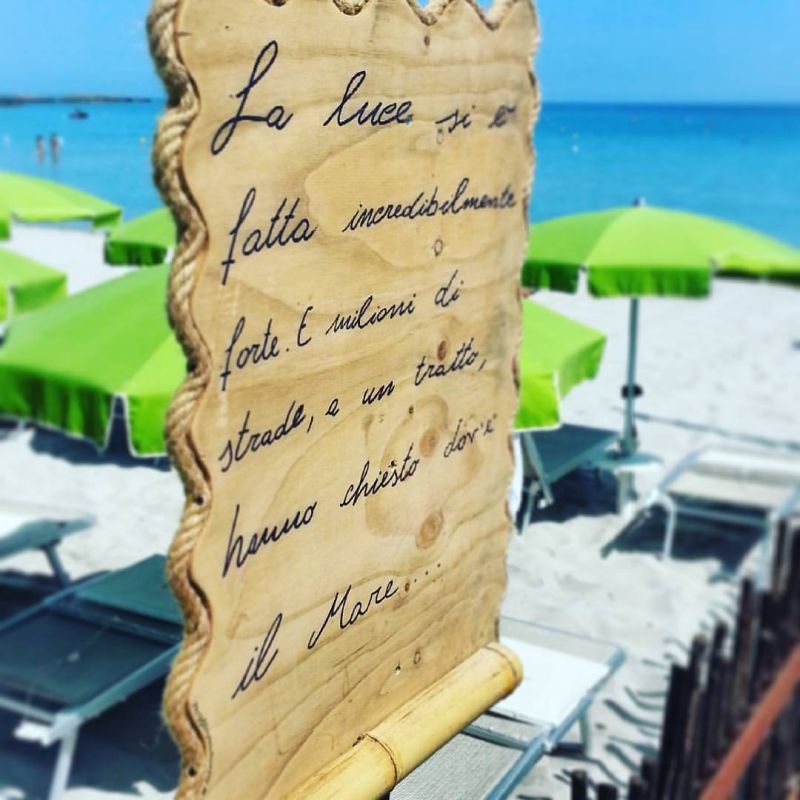 La luce si è
fatta incredibilmente
forte. E milioni di
strade, a un tratto,
hanno chiesto dov'è
il Mare....